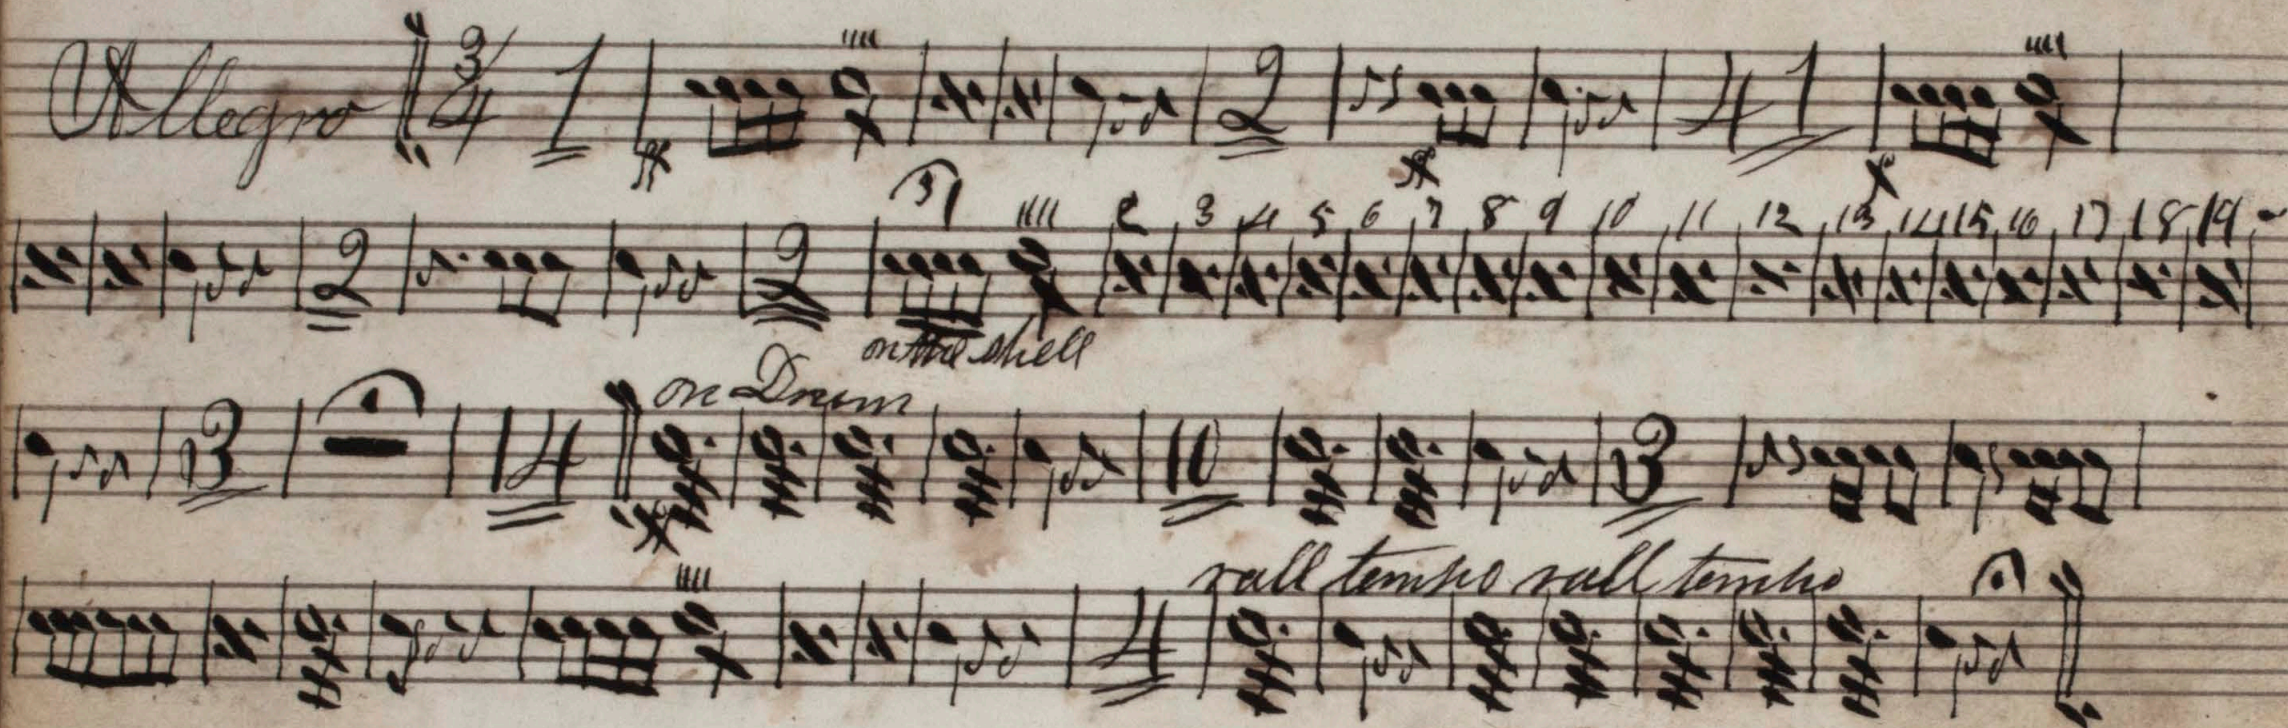 Allegro 3/4 1 2 41
2 2 2 3 4 5 6 7 8 9 10 11 12 13 14 15 16 17 18 19
on the shell
on Drum
3 14 10 3
rall tempo rall tempo
4